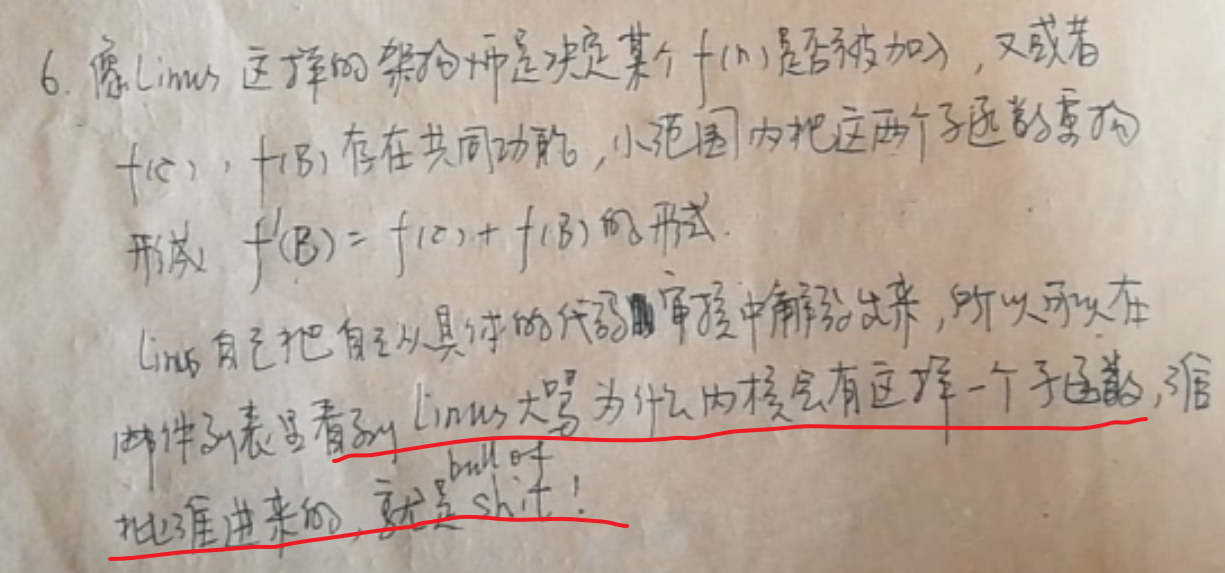 6. 像Linus 这样的架构师是决定某个 f(n) 是否被加入, 又或者
f(c), f(B) 存在共同功能, 小范围内把这两个子函数重构
形成 f'(B) = f(c) + f(B) 的形式.
Linus 自己把自己从具体的代码审核中解放出来, 所以可以在
邮件列表里看到 Linus大骂为什么内核会有这样一个子函数, 谁
批准进来的, 就是 bull of shit!